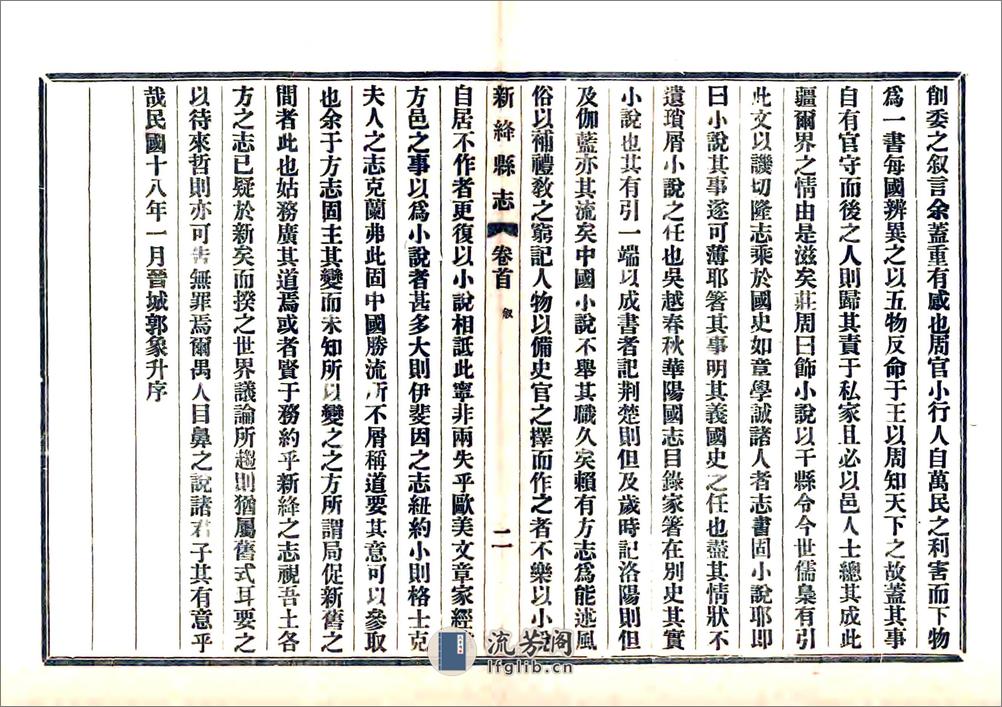 創委之叙言余蓋重有感也周官小行人自萬民之利害而下物
爲一書每國辨異之以五物反命于王以周知天下之故蓋其事
自有官守而後之人則歸其責于私家且必以邑人士總其成此
疆爾界之情由是滋矣莊周曰飾小說以干縣令今世儒梟有引
此文以譏切隆志乘於國史如章學誠諸人者志書固小說耶即
曰小說其事遂可薄耶箸其事明其義國史之任也盡其情狀不
遺瑣屑小說之任也吳越春秋華陽國志目錄家箸在別史其實
小說也其有引一端以成書者記荆楚則但及歲時記洛陽則但
及伽藍亦其流矣中國小說不舉其職久矣賴有方志爲能述風
俗以補禮敎之窮記人物以備史官之擇而作之者不樂以小
新絳縣志 卷首 叙 二
自居不作者更復以小說相詆此寧非兩失乎歐美文章家經
方邑之事以爲小說者甚多大則伊斐因之志紐約小則格士克
夫人之志克蘭弗此固中國勝流所不屑稱道要其意可以參取
也余于方志固主其變而未知所以變之之方所謂局促新舊之
間者此也姑務廣其道焉或者賢于務約乎新絳之志視吾土各
方之志已疑於新矣而揆之世界議論所趨則猶屬舊式耳要之
以待來哲則亦可告無罪焉爾禺人目鼻之說諸君子其有意乎
哉民國十八年一月晉城郭象升序
流芳閣
lfglib.cn